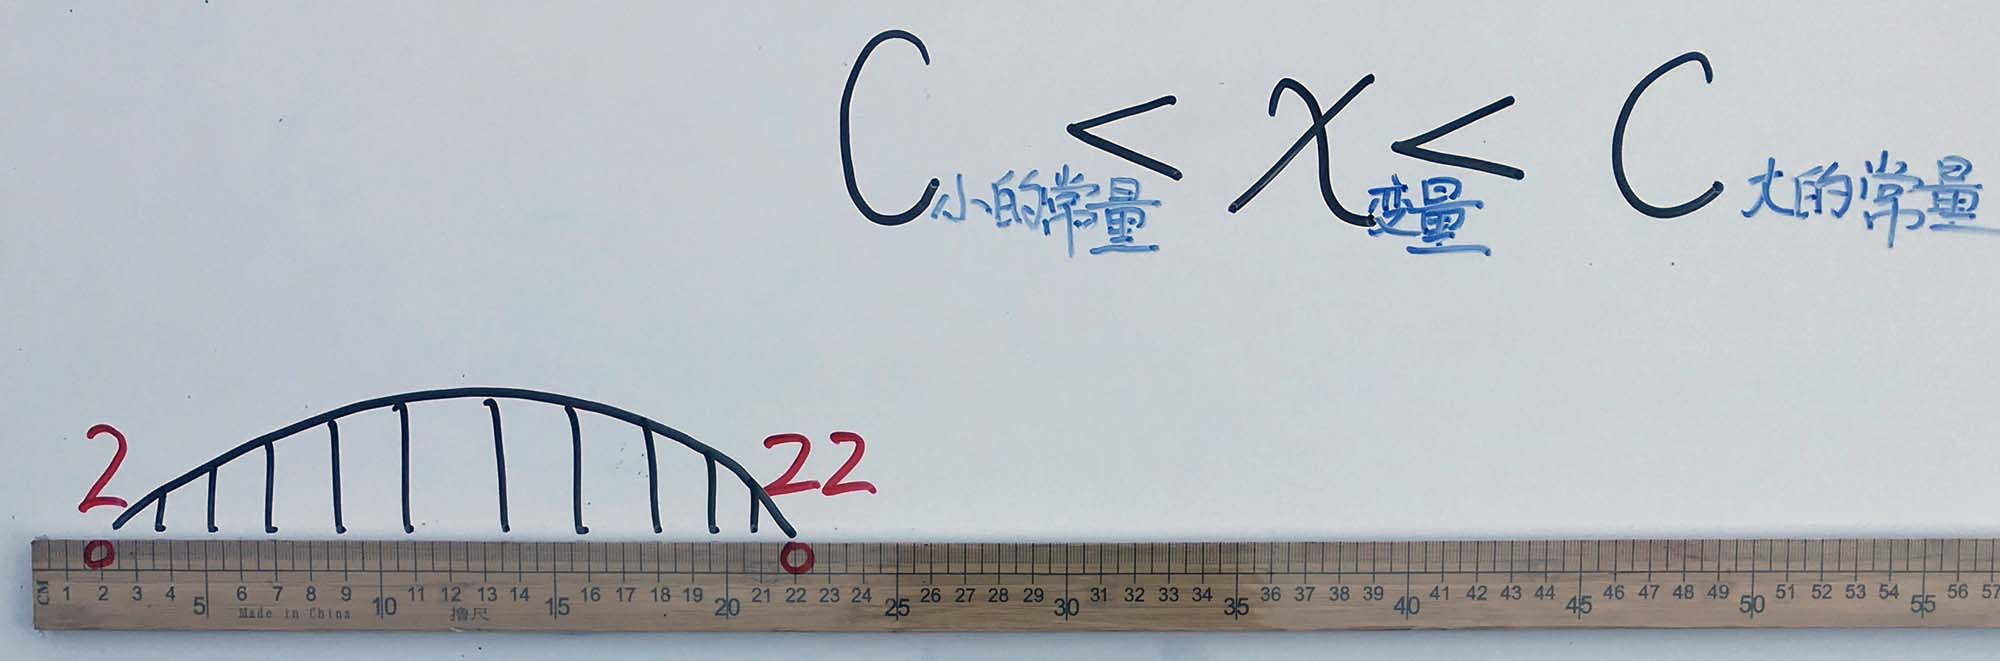 C小的常量 < x变量 < C大的常量
2 22
0 0
CM 1 2 3 4 5 6 7 8 9 10 11 12 13 14 15 16 17 18 19 20 21 22 23 24 25 26 27 28 29 30 31 32 33 34 35 36 37 38 39 40 41 42 43 44 45 46 47 48 49 50 51 52 53 54 55 56 57
Made in China 撸尺